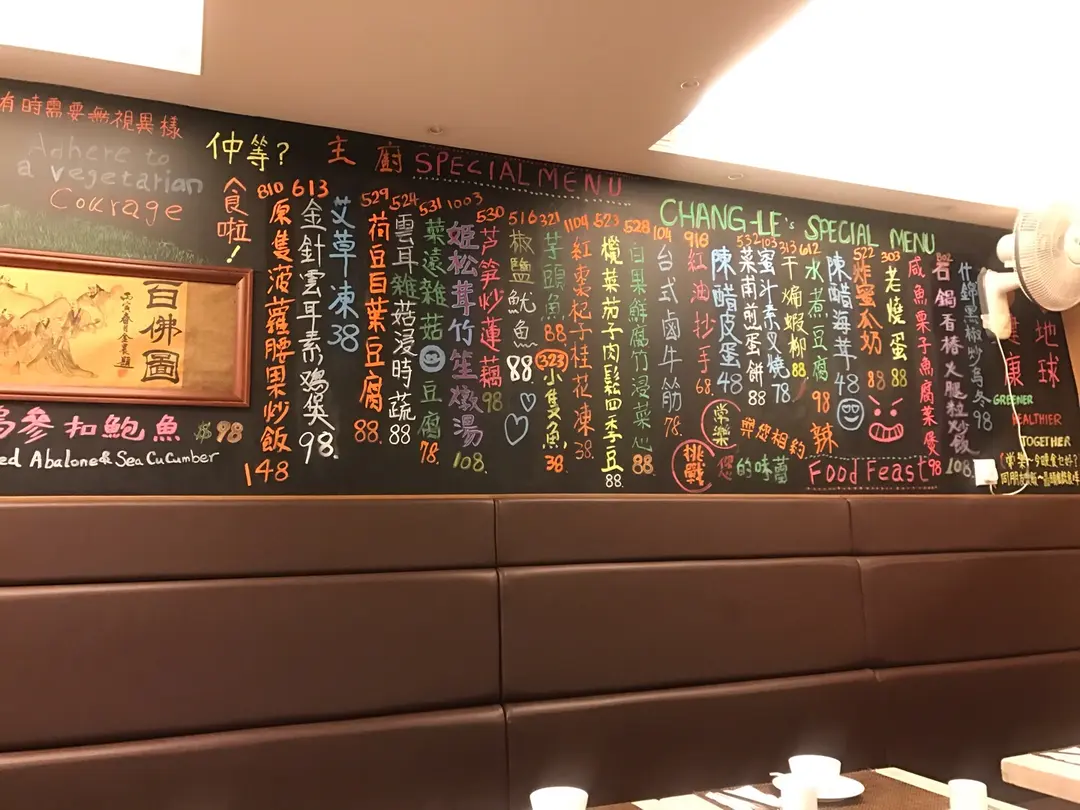 有時需要無視異樣
Adhere to
a vegetarian
Courage
百佛圖
扣鮑魚 $98
Abalone & Sea Cucumber
仲等?
食啦!
主廚 SPECIAL MENU
810 原隻菠蘿腰果炒飯 148
613 金針雲耳素鷄煲 98
艾草凍 38
529 荷豆百葉豆腐 88
524 雲耳雜菇浸時蔬 88
531 豆腐 78
1003 姬松茸竹笙燉湯 108
530 芦笋炒蓮藕 98
516 椒鹽魷魚 88
321 芋頭魚 88
(323) 小隻魚 38
1104 紅棗杞子桂花凍 38
523 欖菜茄子肉鬆四季豆 88
528 白果鮮腐竹浸菜心 88
104 台式鹵牛筋 78
CHANG-LE's SPECIAL MENU
916 紅油抄手 68
陳醋皮蛋 48
532 菜甫煎蛋餅 88
103 蜜汁素叉燒 78
313 干煸蝦柳 88
612 水煮豆腐 98
陳醋海茸 48
522 炸蜜瓜奶 88
303 老燒蛋 88
咸魚栗子魚腐菜煲 98
802 石鍋香椿火腿粒炒飯 108
什錦黑椒炒烏冬 98
常樂 與您相約
挑戰 您的味蕾
辣
Food Feast
地球
健康
GREENER
HEALTHIER
TOGETHER